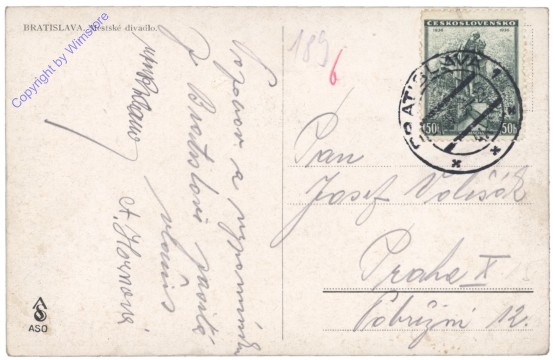 BRATISLAVA. Městské divadlo.
Copyright by Wimstore
Pozdrav a vzpomínku
z Bratislavi zasílá
A. Hornová
189
6
ČESKOSLOVENSKO
1934 1934
50h 50h
BRATISLAVA 1
Pan
Josef Volišák
Praha X
Pobřežní 12.
ASO